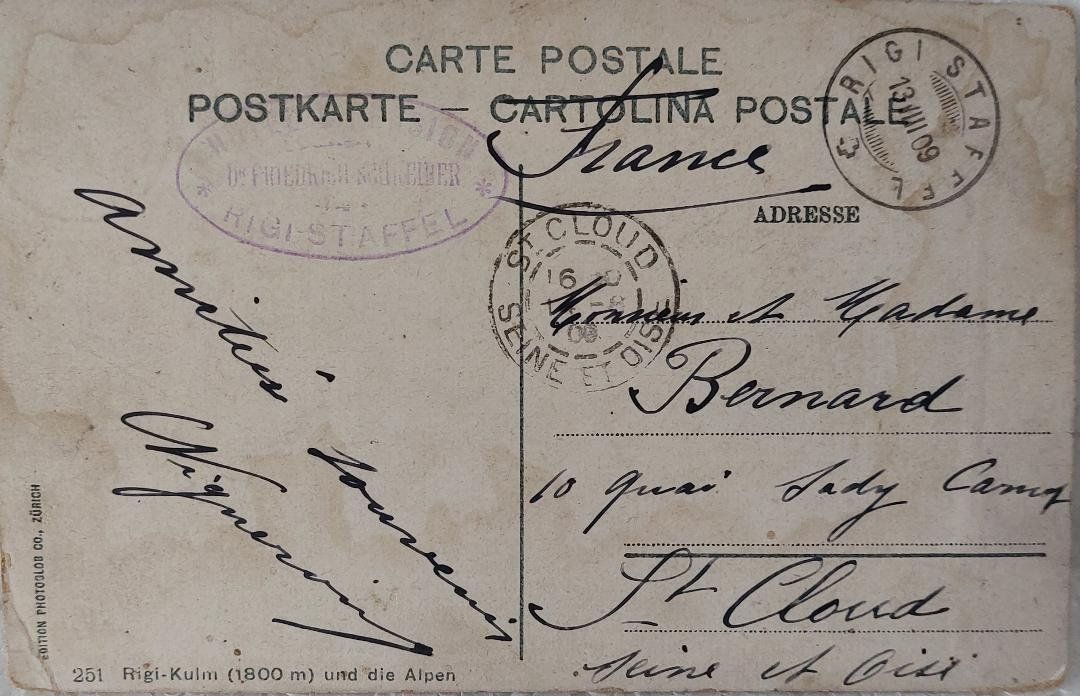 CARTE POSTALE
POSTKARTE — CARTOLINA POSTALE
France
RIGI STAFFEL
13.VIII.09
Dr FRIEDRICH SCHREIBER
RIGI-STAFFEL
ADRESSE
ST CLOUD
SEINE ET OISE
Amitiés
souvenir
Monsieur et Madame
Bernard
10 quai Sady Carnot
St Cloud
Seine et Oise
EDITION PHOTOGLOB CO., ZÜRICH
251 Rigi-Kulm (1800 m) und die Alpen